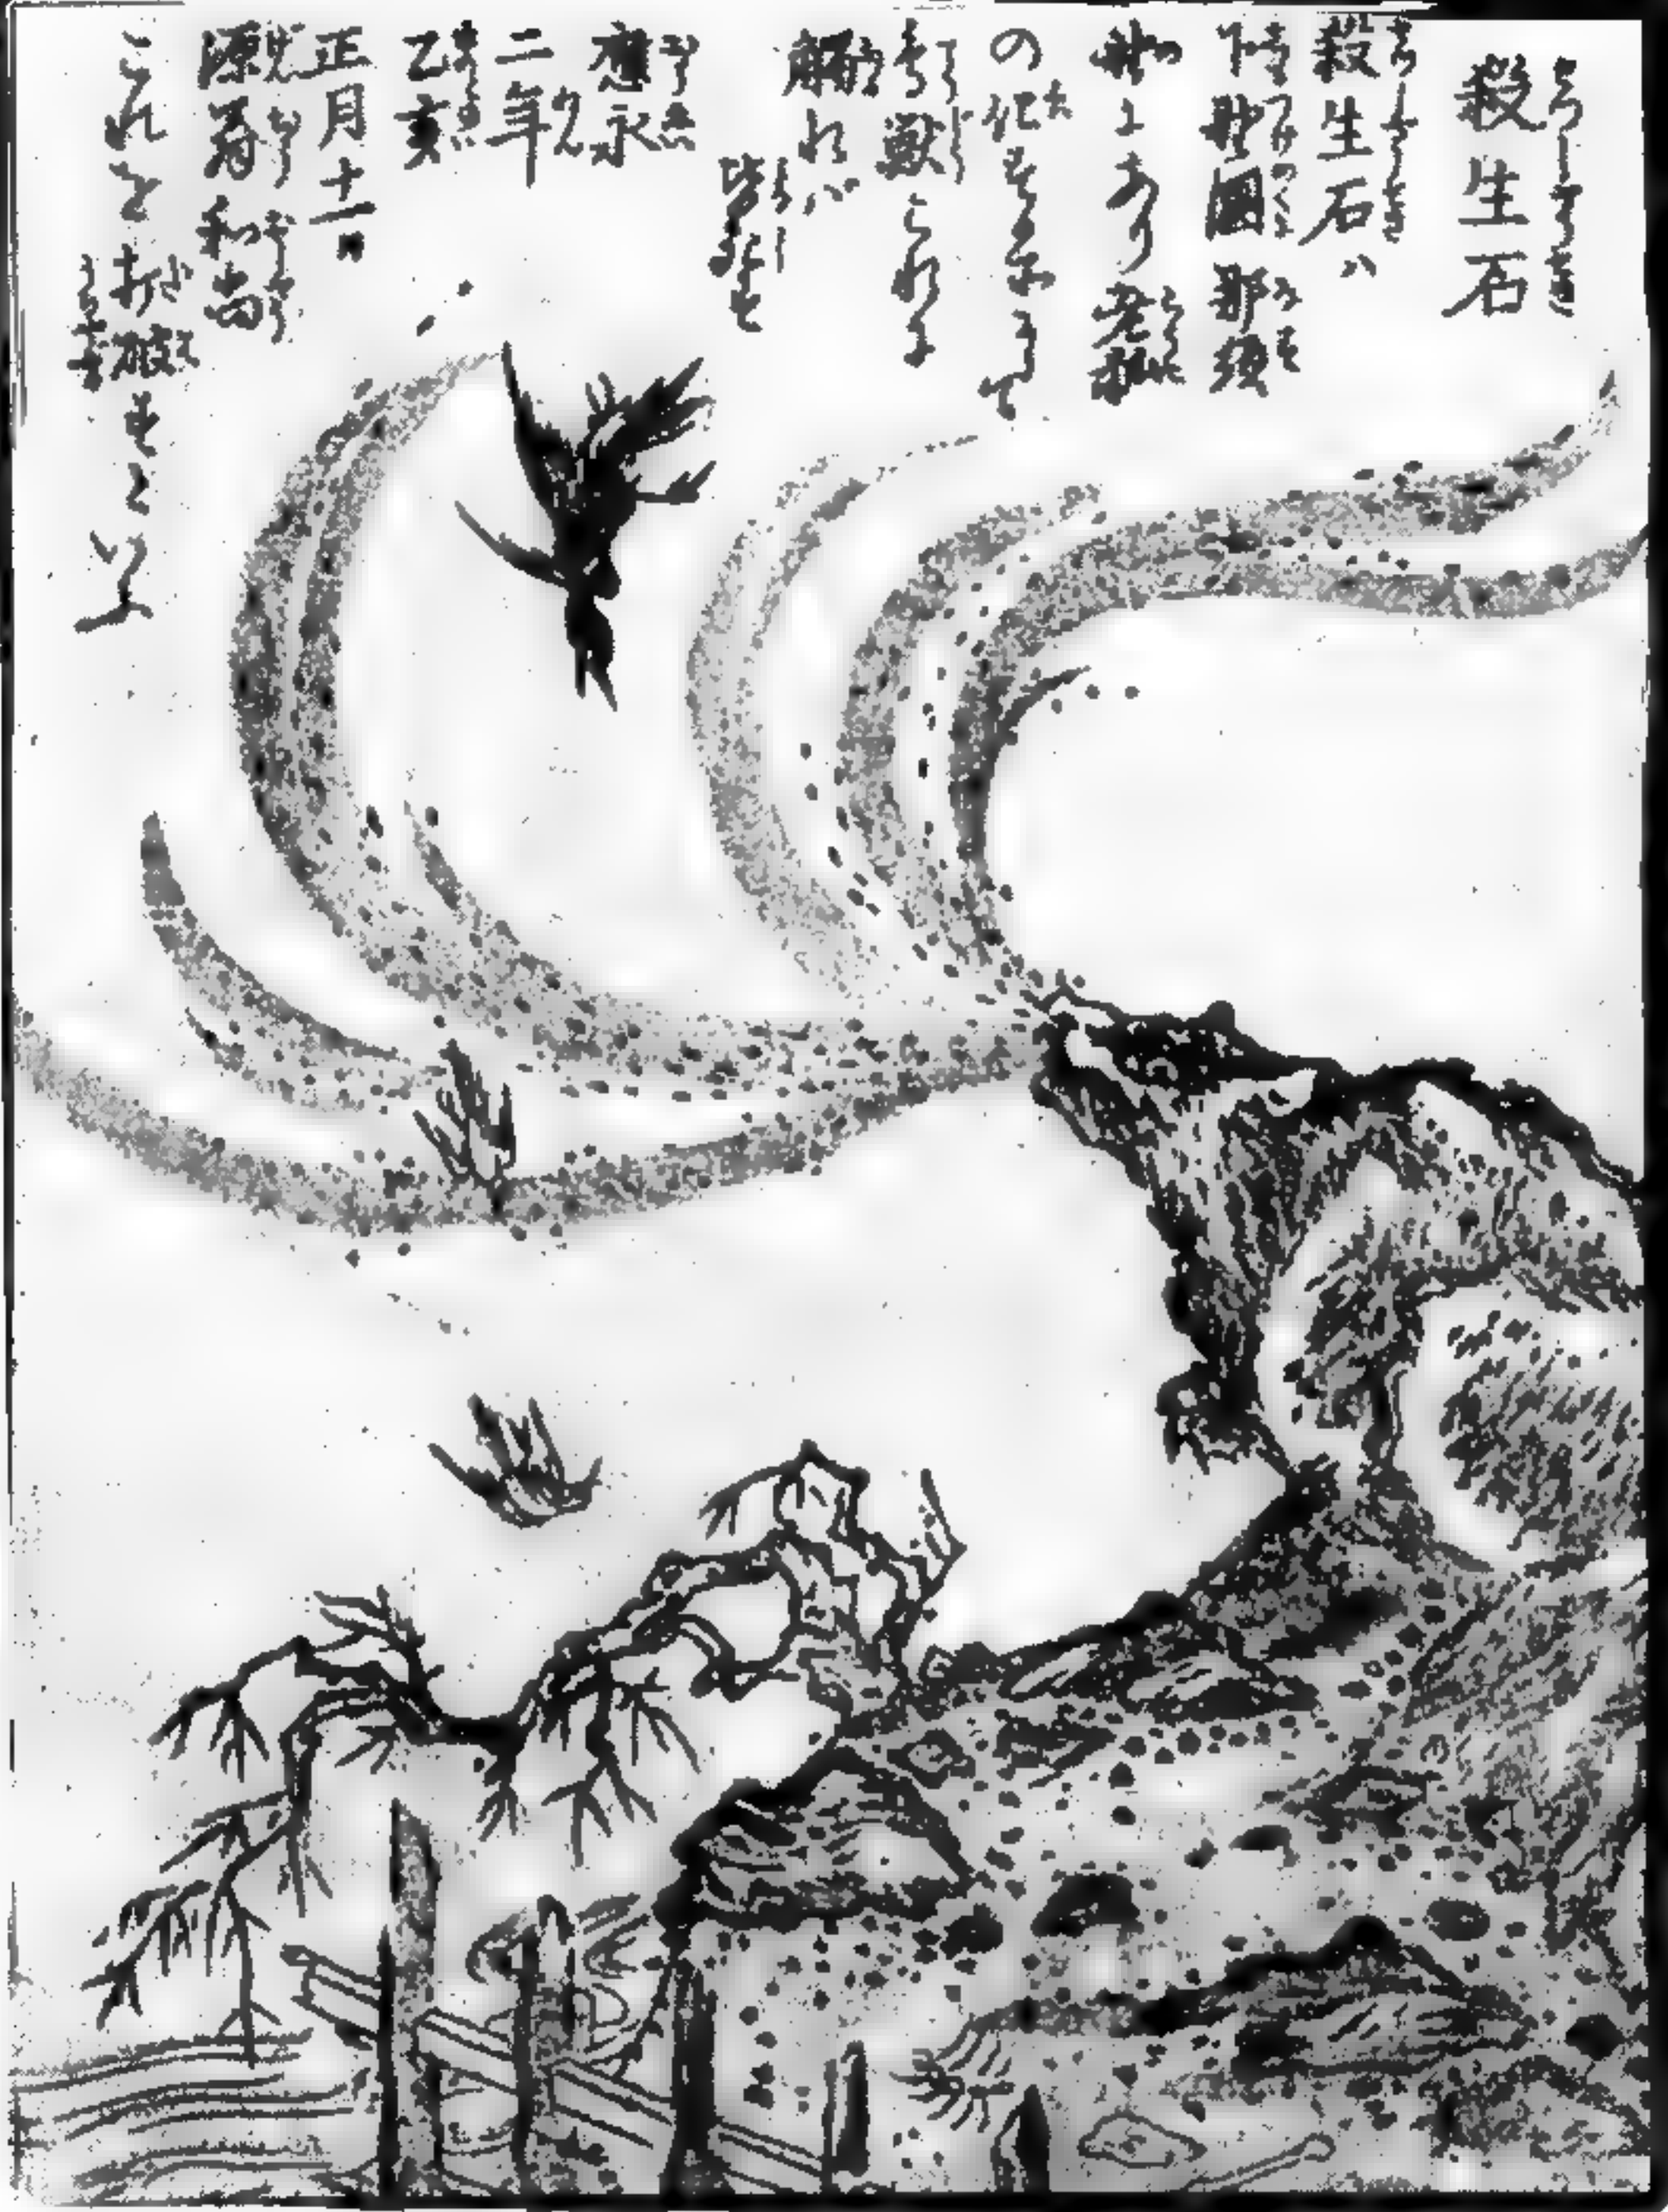 殺生石
殺生石ハ
下野國那須
野にあり老狐
の化する所にして
鳥獣これに
觸れバ
皆死す
應永
二年
乙亥
正月十一日
源翁和尚
これを打破すといふ